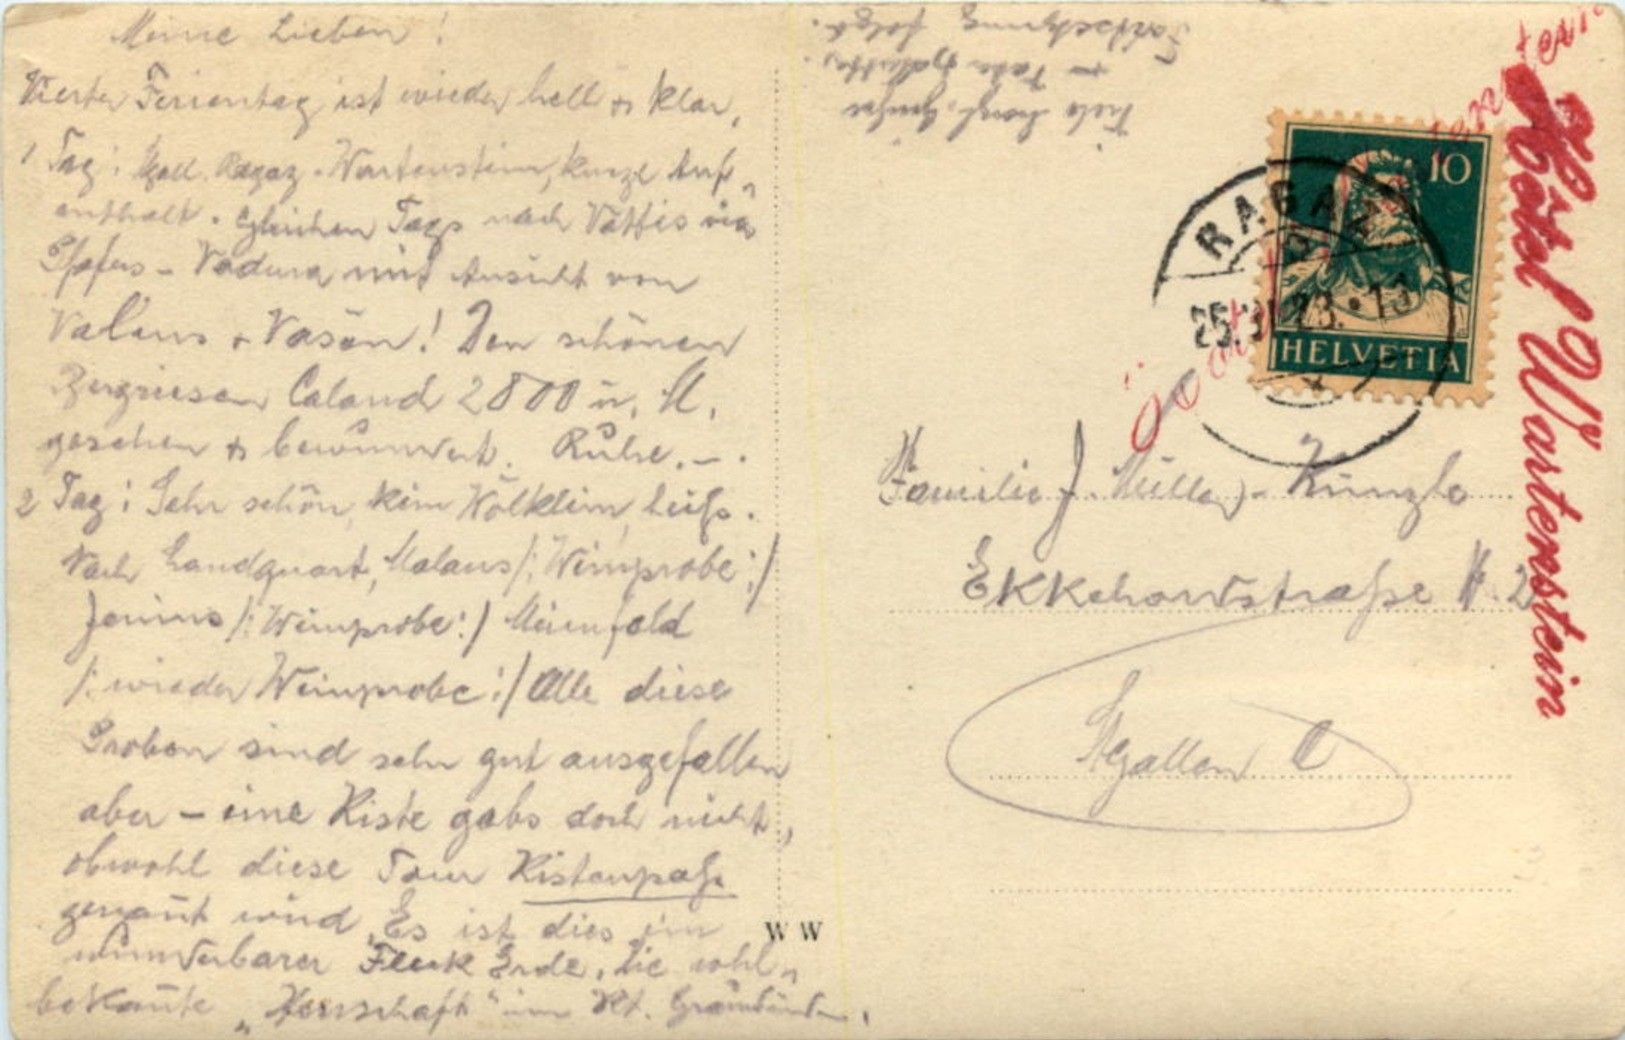 Meine Lieben!
Vierter Ferientag ist wieder hell & klar,
1 Tag: Ragaz - Wartenstein, kurze Auf„
enthalt. Gleichen Tags nach Vättis via
Pfäfers - Vadura mit Ansicht von
Valens & Vasön! Den schönen
Bergriesen Caland 2800 ü. M.
gesehen & bewundert. Ruhe. - .
2 Tag: Sehr schön, kein Wölklein, heiss.
Nach Landquart, Malans /: Weinprobe :/
Jenins /: Weinprobe :/ Meienfeld
/: wieder Weinprobe :/ Alle diese
Proben sind sehr gut ausgefallen
aber - eine Kiste gabs doch nicht,
obwohl diese Tour Kistenpass
genannt wird. Es ist dies ein
wunderbarer Fleck Erde, die wohl„
bekannte „Herrschaft" im Kt. Graubünden.
Viele herzl. Grüsse
Fortsetzung folgt.
10
RAGAZ
25. 23.
HELVETIA
Hôtel Wartenstein
Familie J. Müller - Künzle
Ekkehardstraße No. 2
St Gallen C
W W